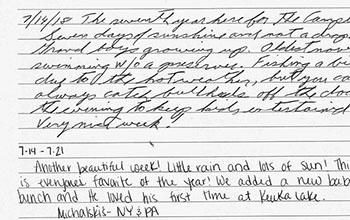 7/14/18 The seventh year here for The Camp
Seven days of sunshine and not a drop
Grand boys growing up. Oldest now
swimming w/o a preserver. Fishing a bi
due to the hot weather, but you ca
always catch bullheads off the doc
the evening to keep kids entertained
Very nice week.
7-14 - 7-21
Another beautiful week! Little rain and lots of sun! Thi
is everyones favorite of the year! We added a new bab
bunch and he loved his first time at Keuka Lake.
Michalskis - NY & PA